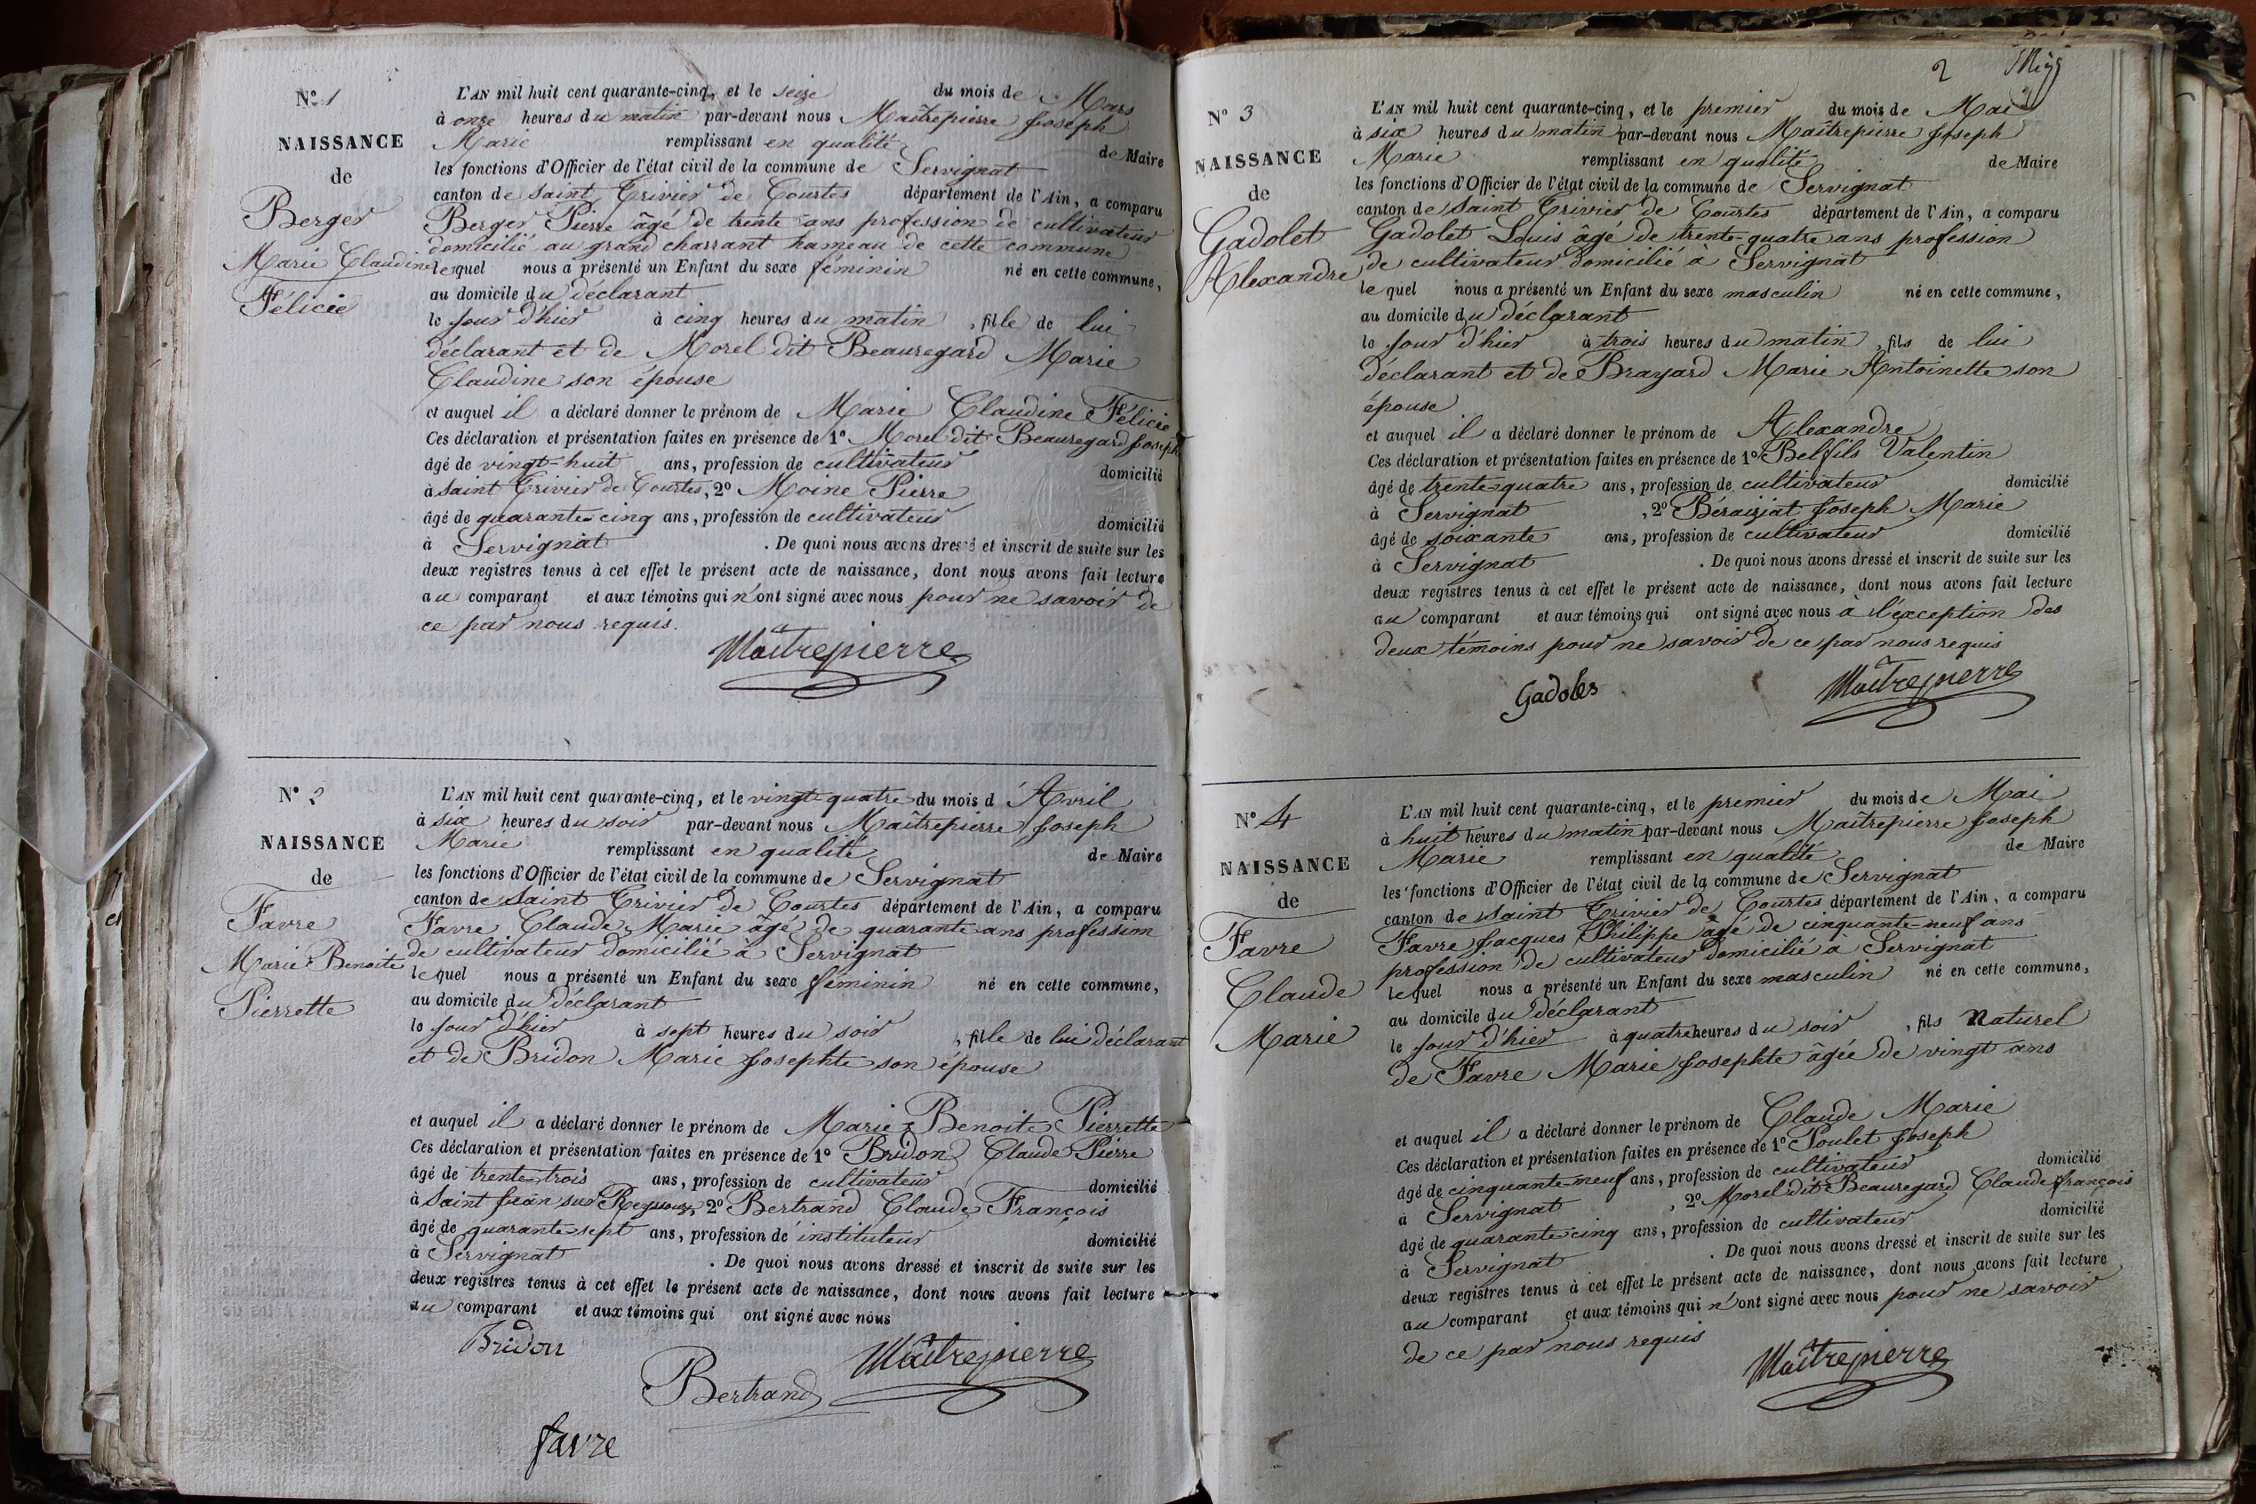 N° 1
NAISSANCE
de
Berger
Marie Claudine
Félicie
L'AN mil huit cent quarante-cinq, et le seize du mois de Mars
à onze heures du matin par-devant nous Maîtrepierre Joseph
Marie remplissant en qualité de Maire
les fonctions d'Officier de l'état civil de la commune de Servignat
canton de Saint Trivier de Courtes département de l'Ain, a comparu
Berger Pierre âgé de trente ans profession de cultivateur
domicilié au grand charrant hameau de cette commune
lequel nous a présenté un Enfant du sexe féminin né en cette commune,
au domicile du déclarant
le jour d'hier à cinq heures du matin, fille de lui
déclarant et de Morel dit Beauregard Marie
Claudine son épouse
et auquel il a déclaré donner le prénom de Marie Claudine Félicie
Ces déclaration et présentation faites en présence de 1° Morel dit Beauregard Joseph
âgé de vingt-huit ans, profession de cultivateur domicilié
à Saint Trivier de Courtes, 2° Moine Pierre
âgé de quarante-cinq ans, profession de cultivateur domicilié
à Servignat . De quoi nous avons dressé et inscrit de suite sur les
deux registres tenus à cet effet le présent acte de naissance, dont nous avons fait lecture
au comparant et aux témoins qui n'ont signé avec nous pour ne savoir de
ce par nous requis.
Maîtrepierre
N° 2
NAISSANCE
de
Favre
Marie Benoite
Pierrette
L'AN mil huit cent quarante-cinq, et le vingt-quatre du mois d'Avril
à six heures du soir par-devant nous Maîtrepierre Joseph
Marie remplissant en qualité de Maire
les fonctions d'Officier de l'état civil de la commune de Servignat
canton de Saint Trivier de Courtes département de l'Ain, a comparu
Favre Claude Marie âgé de quarante ans profession
de cultivateur domicilié à Servignat
lequel nous a présenté un Enfant du sexe féminin né en cette commune,
au domicile du déclarant
le jour d'hier à sept heures du soir, fille de lui déclarant
et de Bridon Marie Josephte son épouse
et auquel il a déclaré donner le prénom de Marie Benoite Pierrette
Ces déclaration et présentation faites en présence de 1° Bridon Claude Pierre
âgé de trente-trois ans, profession de cultivateur domicilié
à Saint Jean sur Reyssouze, 2° Bertrand Claude François
âgé de quarante-sept ans, profession de instituteur domicilié
à Servignat . De quoi nous avons dressé et inscrit de suite sur les
deux registres tenus à cet effet le présent acte de naissance, dont nous avons fait lecture
au comparant et aux témoins qui ont signé avec nous
Bridon
Bertrand Maîtrepierre
favre
2
N° 3
NAISSANCE
de
Gadolet
Alexandre
L'AN mil huit cent quarante-cinq, et le premier du mois de Mai
à six heures du matin par-devant nous Maîtrepierre Joseph
Marie remplissant en qualité de Maire
les fonctions d'Officier de l'état civil de la commune de Servignat
canton de Saint Trivier de Courtes département de l'Ain, a comparu
Gadolet Louis âgé de trente-quatre ans profession
de cultivateur domicilié à Servignat
lequel nous a présenté un Enfant du sexe masculin né en cette commune,
au domicile du déclarant
le jour d'hier à trois heures du matin, fils de lui
déclarant et de Brayard Marie Antoinette son
épouse
et auquel il a déclaré donner le prénom de Alexandre
Ces déclaration et présentation faites en présence de 1° Belfils Valentin
âgé de trente-quatre ans, profession de cultivateur domicilié
à Servignat, 2° Béraiziat Joseph Marie
âgé de soixante ans, profession de cultivateur domicilié
à Servignat . De quoi nous avons dressé et inscrit de suite sur les
deux registres tenus à cet effet le présent acte de naissance, dont nous avons fait lecture
au comparant et aux témoins qui ont signé avec nous à l'exception des
deux témoins pour ne savoir de ce par nous requis
Gadolet Maîtrepierre
N° 4
NAISSANCE
de
Favre
Claude
Marie
L'AN mil huit cent quarante-cinq, et le premier du mois de Mai
à huit heures du matin par-devant nous Maîtrepierre Joseph
Marie remplissant en qualité de Maire
les fonctions d'Officier de l'état civil de la commune de Servignat
canton de Saint Trivier de Courtes département de l'Ain, a comparu
Favre Jacques Philippe âgé de cinquante-neuf ans
profession de cultivateur domicilié à Servignat
lequel nous a présenté un Enfant du sexe masculin né en cette commune,
au domicile du déclarant
le jour d'hier à quatre heures du soir, fils naturel
de Favre Marie Josephte âgée de vingt ans
et auquel il a déclaré donner le prénom de Claude Marie
Ces déclaration et présentation faites en présence de 1° Poulet Joseph
âgé de cinquante-neuf ans, profession de cultivateur domicilié
à Servignat, 2° Morel dit Beauregard Claude françois
âgé de quarante-cinq ans, profession de cultivateur domicilié
à Servignat . De quoi nous avons dressé et inscrit de suite sur les
deux registres tenus à cet effet le présent acte de naissance, dont nous avons fait lecture
au comparant et aux témoins qui n'ont signé avec nous pour ne savoir
de ce par nous requis
Maîtrepierre